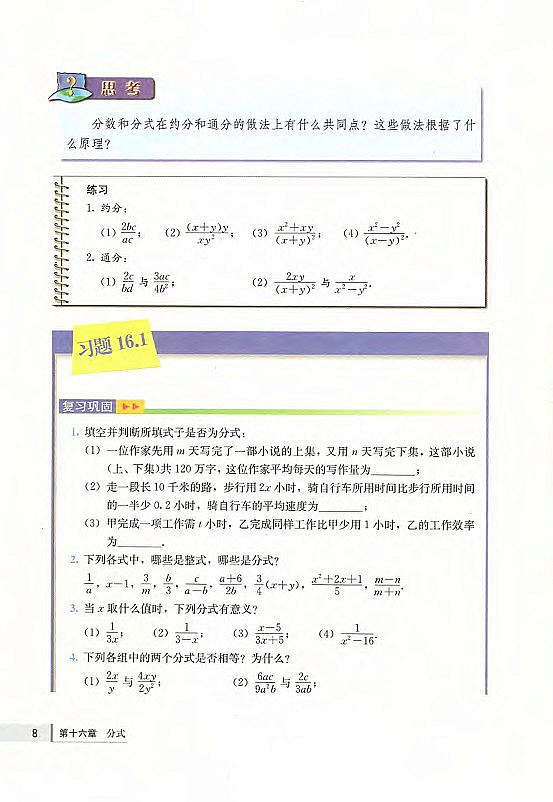 思考
分数和分式在约分和通分的做法上有什么共同点？这些做法根据了什
么原理？
练习
1. 约分：
(1) 2bc/ac； (2) (x+y)y/xy²； (3) (x²+xy)/(x+y)²； (4) (x²-y²)/(x-y)².
2. 通分：
(1) 2c/bd 与 3ac/4b²； (2) 2xy/(x+y)² 与 x/(x²-y²).
习题 16.1
复习巩固
1. 填空并判断所填式子是否为分式：
(1) 一位作家先用 m 天写完了一部小说的上集，又用 n 天写完下集，这部小说
(上、下集)共 120 万字，这位作家平均每天的写作量为________；
(2) 走一段长 10 千米的路，步行用 2x 小时，骑自行车所用时间比步行所用时间
的一半少 0.2 小时，骑自行车的平均速度为________；
(3) 甲完成一项工作需 t 小时，乙完成同样工作比甲少用 1 小时，乙的工作效率
为________.
2. 下列各式中，哪些是整式，哪些是分式？
1/a, x-1, 3/m, b/3, c/(a-b), (a+6)/2b, 3/4(x+y), (x²+2x+1)/5, (m-n)/(m+n).
3. 当 x 取什么值时，下列分式有意义？
(1) 1/3x； (2) 1/(3-x)； (3) (x-5)/(3x+5)； (4) 1/(x²-16).
4. 下列各组中的两个分式是否相等？为什么？
(1) 2x/y 与 4xy/2y²； (2) 6ac/9a²b 与 2c/3ab；
8 第十六章 分式